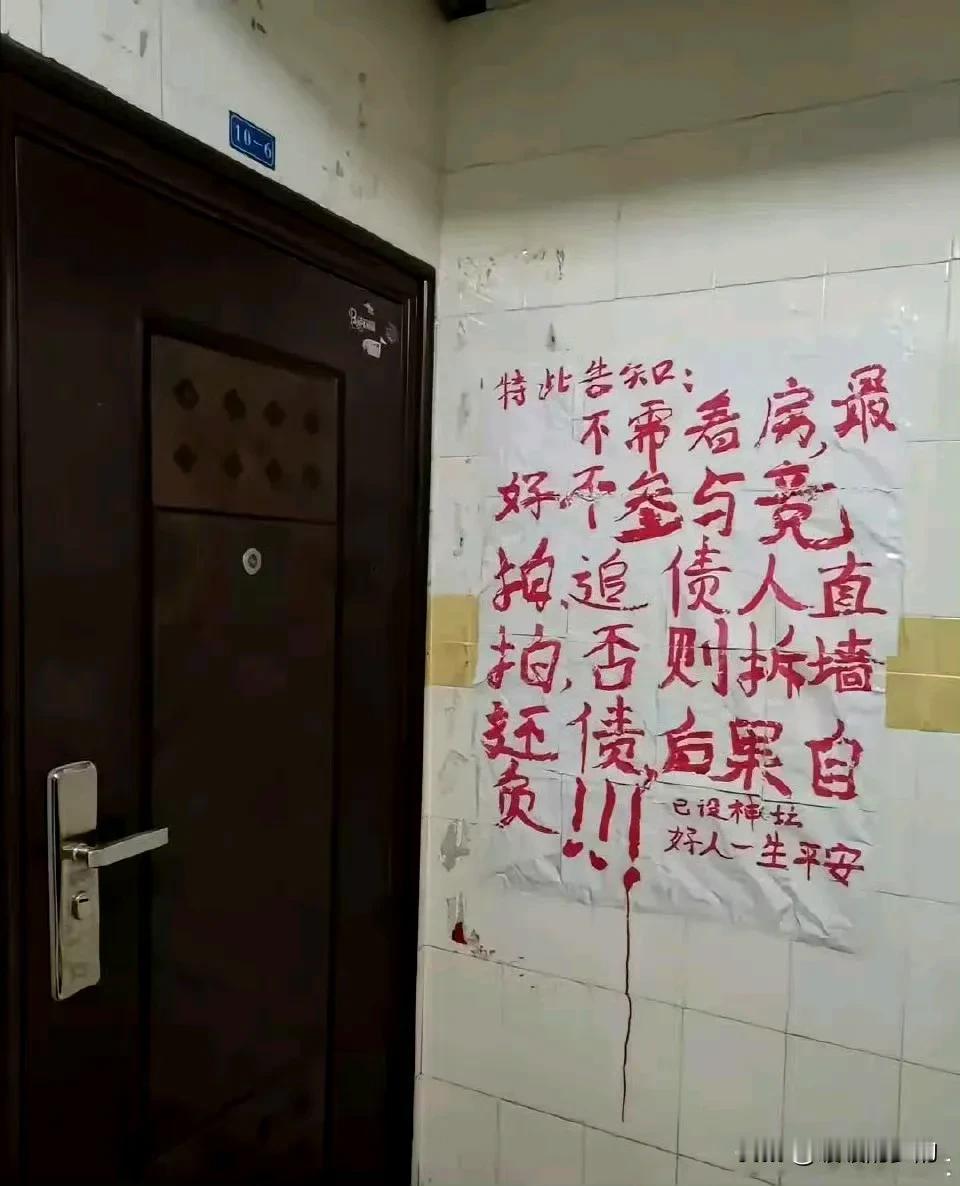 10-6
特此告知：
不需看房，最
好不参与竞
拍，追债人直
拍，否则拆墙
还债，后果自
负！！！
已设神坛
好人一生平安